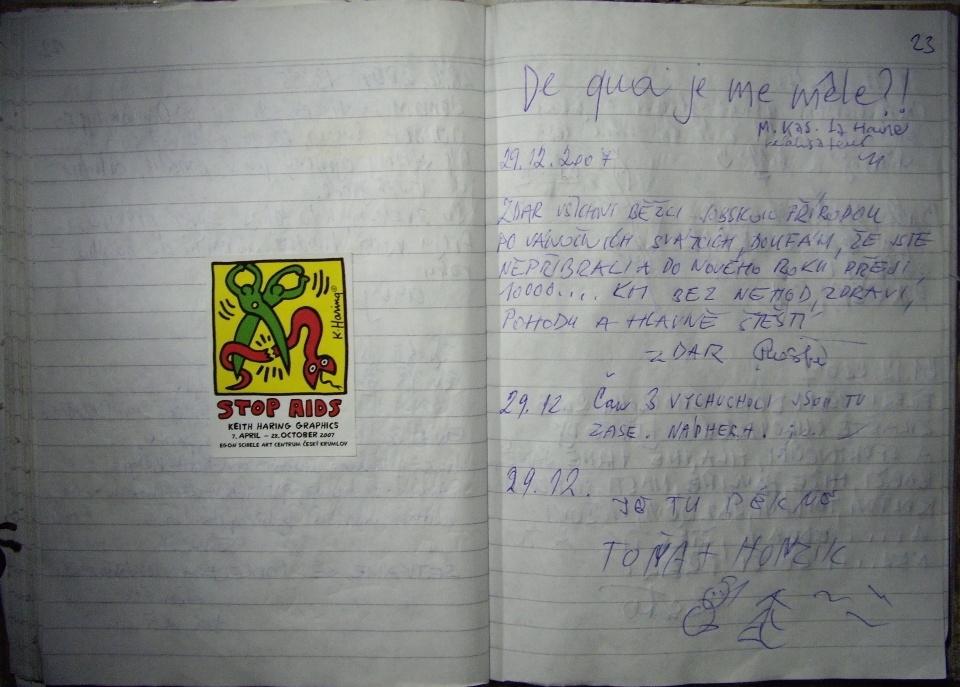 K. Haring ©
STOP AIDS
KEITH HARING GRAPHICS
7. APRIL – 28. OCTOBER 2007
EGON SCHIELE ART CENTRUM ČESKÝ KRUMLOV
23
De qua je me mêle?!
29.12.2007
ZDAR VŠICHNI BĚŽCI PŘÍRODOU
PO VÁNOČNÍCH SVÁTCÍCH, DOUFÁM, ŽE JSTE
NEPŘIBRALI A DO NOVÉHO ROKU PŘEJI
10000.... KM BEZ NEHOD, ZDRAVÍ,
POHODU A HLAVNĚ ŠTĚSTÍ
ZDAR
29.12. Čau 3 VYCHUCHOLI JSOU TU
ZASE. NÁDHERA.
29.12.
JE TU PĚKNĚ
TOŇA + HONZIK